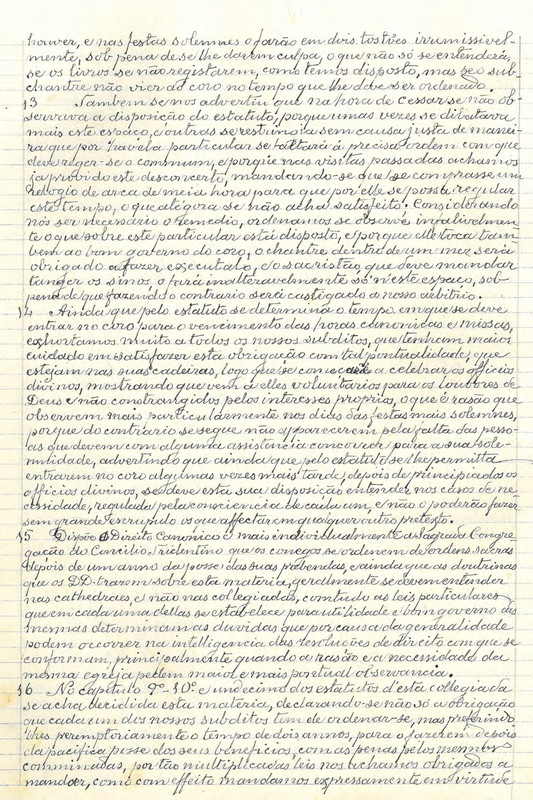 houver, e nas festas solemnes o farão em dois tostões irremissivel-
mente, sob pena de se lhe dar em culpa, o que não só se entenderá,
se os livros se não registarem, como temos disposto, mas se o sub-
chantre não vier ao coro no tempo que lhe deve ser ordenado.
13 Tambem se nos advertiu que na hora de cessar se não ob-
servava a disposição do estatuto, porque umas vezes se dilatava
mais este espaço, e outras se restringia sem causa justa de manei-
ra que por havel-a particular se faltará á precisa ordem com que
deve reger-se o commum, e porque nas visitas passadas achamos
ja provido este desconcerto, mandando-se que se comprasse um
relogio de arca de meia hora para que por elle se possa regular
este tempo, o que alegora se não acha satisfeito. Considerando
nós ser necesario o remedio, ordenamos se observe infalivelmen-
te o que sobre este particular está disposto, e porque elle toca tam-
bem ao bom governo do coro, o chantre, dentro de um mez será
obrigado a fazer executal-o, e o sacristão, que deve mandar
tanger os sinos, o fará inalteravelmente só n'este espaço, sob
pena de que fazendo o contrario será castigado a nosso arbitrio.
14 Ainda que pelo estatuto se determina o tempo, em que se deve
entrar no coro para o vencimento das horas canonicas e missas,
exhortamos muito a todos os nossos subditos, que tenham maior
cuidado em satisfazer esta obrigação com tal pontualidade, que
estejam nas suas cadeiras, logo que se comece a celebrar os officios
divinos, mostrando que vem á elles voluntarios para os louvores de
Deus e não constrangidos pelos interesses proprios, o que é rasão que
observem mais particularmente nos dias das festas mais solemnes,
porque do contrario se segue não apparecerem pela falta das pesso-
as que devem com alguma assistencia concorrer para a sua sole-
mnidade, advertindo que ainda que pelo estatuto se lhe permitta
entrarem no coro algumas vezes mais tarde, depois de principiados os
officios divinos, se deve esta sua disposição entender nos casos de ne-
cessidade, regulada pela consciencia de cada um, e não o poderão fazer
sem grande escrupulo os que affectarem qualquer outro pretexto.
15 Dispõe o Direito Canonico e mais individualmente a Sagrada Congre
gação do Concilio Tridentino que os conegos se ordenem de ordens sacras
depois de um anno da posse das suas prebendas, e ainda que as doutrinas
que os DD. trazem sobre esta materia, geralmente se devem entender
nas cathedraes e não nas collegiadas, comtudo as leis particulares
que em cada uma dellas se estabelece para utilidade e bom governo das
mesmas determinam as duvidas que por causa da generalidade
podem occorrer na intelligencia das resoluções de direito com que se
conformam, principalmente quando a rasão e a necessidade da
mesma egreja pedem maior e mais pontual observancia.
16 No capitulo 9º 10º e undecimo dos estatutos d'esta collegiada
se acha decidida esta materia, declarando-se não só a obrigação
que cada um dos nossos subditos tem de ordenar-se, mas preferindo
lhes peremptoriamente o tempo de dois annos, para o fazerem depois
da pacifica posse dos seus beneficios, com as penas pelos mesmos
comminadas, por tão multiplicadas leis nos achamos obrigados a
mandar, como com effeito mandamos expressamente em virtude